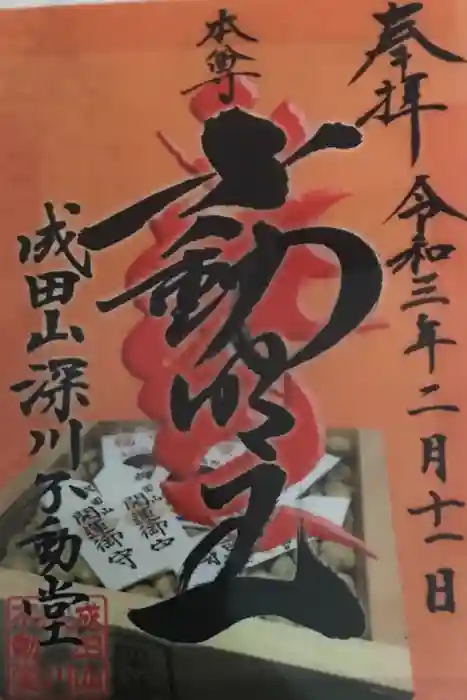 奉拝
令和三年二月十一日
本尊
不動明王
成田山深川不動堂
開運御守
開運御守